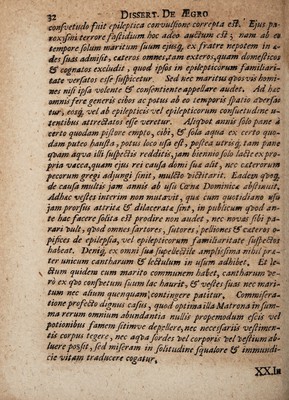 32 DISSERT. DE ÆGRO
consvetudo fuit epileptica convulsione correpta est. Ejus pa-
roxysmi terrore fastidium hoc adeo auctum est; nam ab eo
tempore solum maritum suum ejusq; ex fratre nepotem in æ-
des suas admisit, cæteros omnes, tam exteros, quam domesticos
& cognatos exclusit, quod ipsos in epilepticorum familiari-
tate versatos esse suspicetur. Sed nec maritus quos vis homi-
nes nisi ipsa volente & consentiente appellare audet. Ad hæc
omni fere generis cibos ac potus ab eo temporis spatio aversa-
tur, eosq; vel ab epilepticis vel epilepticorum consuetudine u-
tentibus attrectatos esse veretur. Aliquot annis solo pane à
certo quodam pistore empto, cibi, & sola aqua ex certo quo-
dam puteo hausta, potus loco usa est, postea utrisq; tam pane
quàm aqua illi suspectis redditis, jam biennio solo lacte ex pro-
pria vacca, quam ejus rei causa domi suæ alit, nec cæterorum
pecorum gregi adjungi sinit, mulcto victitarit. Eadem quoq;
de causa multis jam annis ab usu Cœnæ Dominicæ abstinuit.
Adhæc vestes interim non mutavit, quæ cum quotidiano usu
jam prorsus attritæ & dilaceratæ sint, in publicum quod an-
te hac facere solita est prodire non audet, nec novas sibi pa-
rari vult, quod omnes sartores, sutores, pelliones & cæteros o-
pifices de epilepsia, vel epilepticorum familiaritate suspectos
habeat. Deniq; ex omni sua supellectile amplissima nihil præ-
ter unicum cantharum & lectulum in usum adhibet. Et le-
ctum quidem cum marito communem habet, cantharum ve-
rò ex quo consvetum suum lac haurit, & vestes suas nec mari-
tum nec alium quenquam contingere patitur. Commisera-
tione profecto dignus casus, quod optima illa Matrona in sum-
ma rerum omnium abundantia nullis propemodum escis vel
potionibus famem sitimve depellere, nec necessariis vestimen-
tis corpus tegere, nec aqua sordes vel corporis vel vestium ab-
luere possit, sed miseram in solitudine squalore & immundi-
cie vitam traducere cogatur.
XX. In